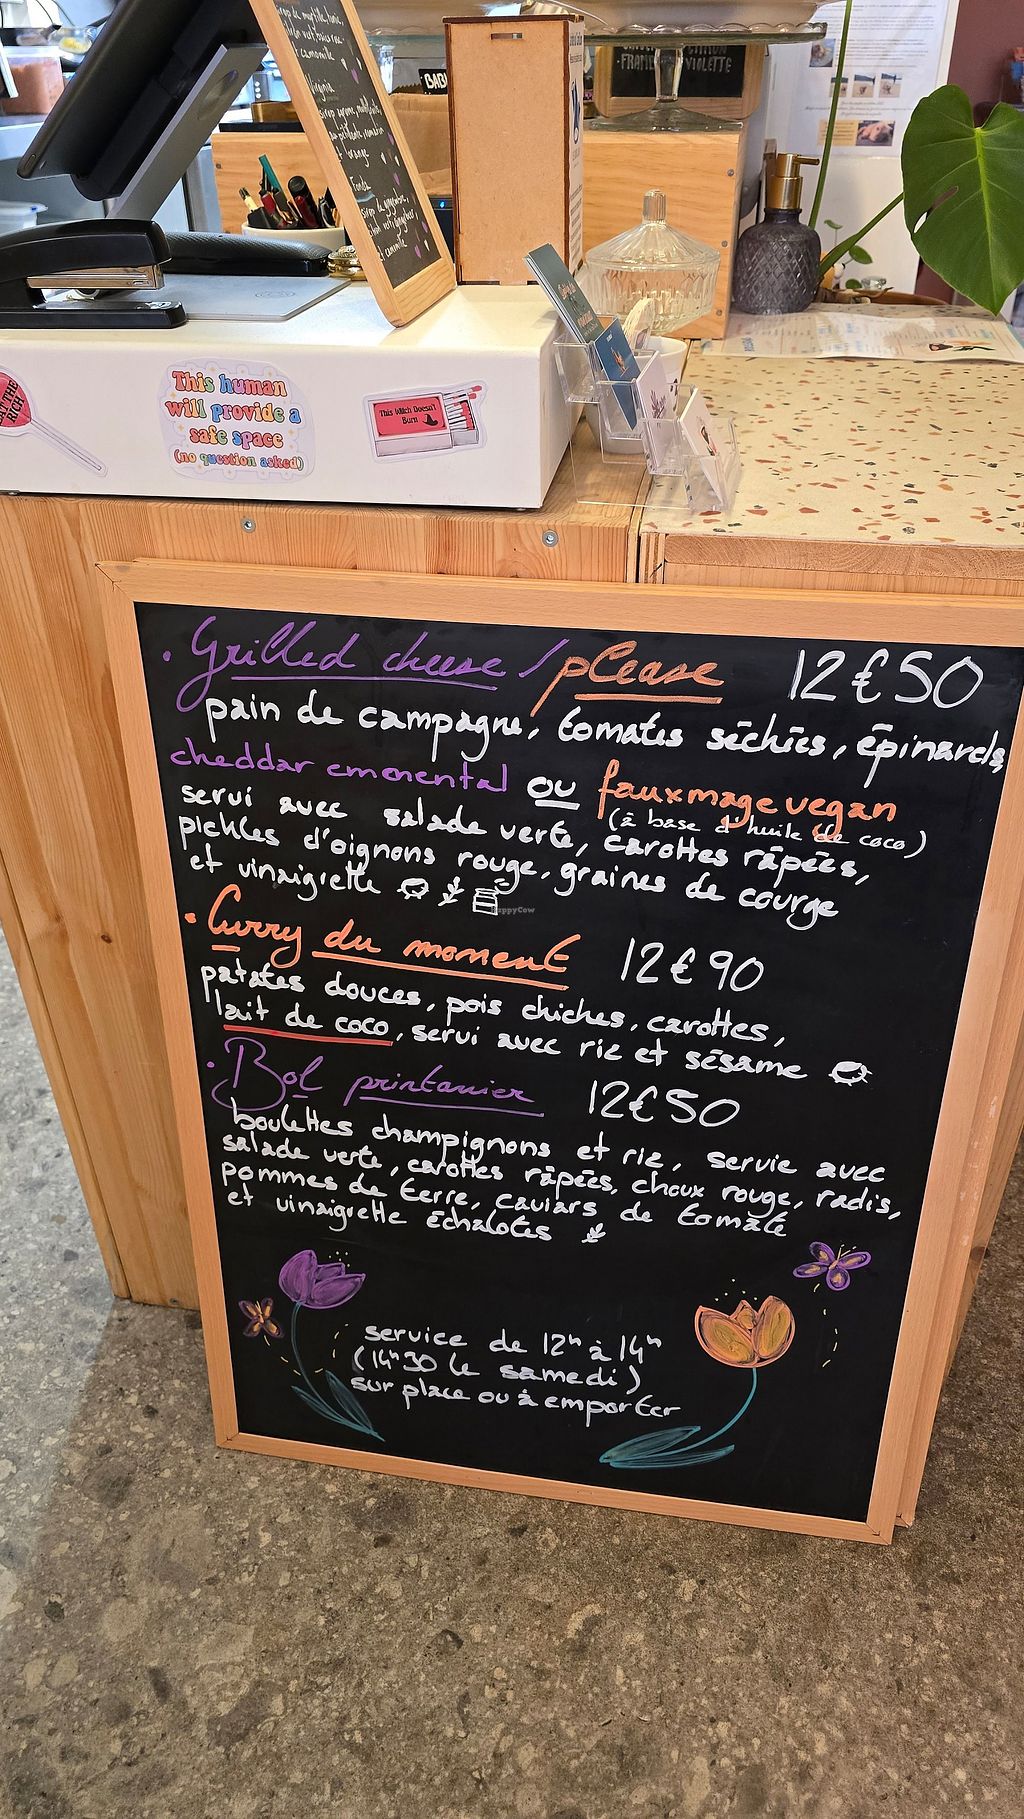 sirop de myrtille, tonic,
et camomille
Virginia
orange
BABI
VIOLETTE
EAT THE
RICH
This human
will provide a
safe space
(no question asked)
This Witch Doesn't
Burn
• Grilled cheese / please 12€50
pain de campagne, tomates séchées, épinards,
cheddar emmental ou fauxmage vegan
(à base d'huile de coco)
servi avec salade verte, carottes râpées,
pickles d'oignons rouge, graines de courge
et vinaigrette
HappyCow
• Curry du moment 12€90
patates douces, pois chiches, carottes,
lait de coco, servi avec riz et sésame
• Bol printanier 12€50
boulettes champignons et riz, servie avec
salade verte, carottes râpées, choux rouge, radis,
pommes de terre, caviars de tomate
et vinaigrette échalotes
service de 12h à 14h
(14h30 le samedi)
sur place ou à emporter